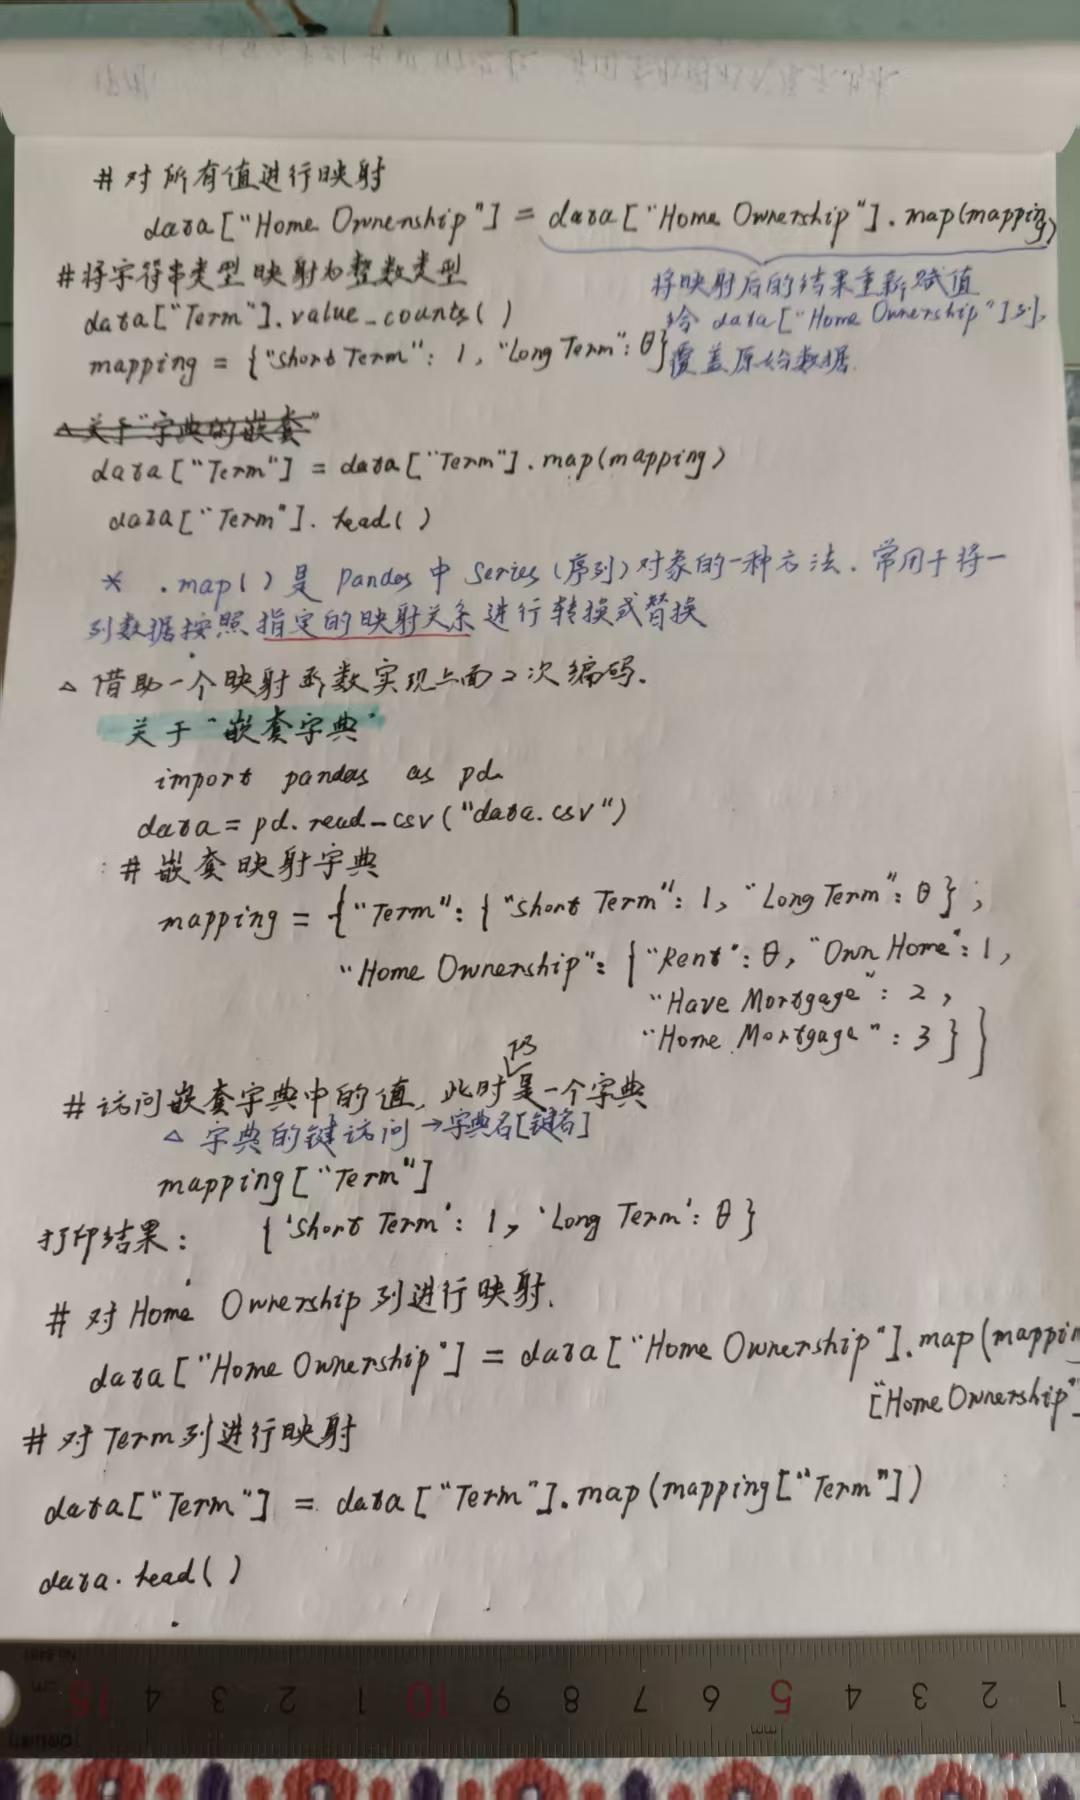 # 对所有值进行映射
data["Home Ownenship"] = data["Home Ownership"].map(mapping)
#将字符串类型映射为整数类型
将映射后的结果重新赋值
data["Term"].value_counts()
给 data["Home Ownership"]列,
mapping = {"Short Term": 1, "Long Term": 0}
覆盖原始数据.
△关于"字典的嵌套"
data["Term"] = data["Term"].map(mapping)
data["Term"].head()
* .map()是 pandas 中 Series(序列)对象的一种方法.常用于将一
列数据按照指定的映射关系进行转换或替换
△ 借助一个映射函数实现上面2次编码.
关于"嵌套字典"
import pandas as pd
data = pd.read_csv("data.csv")
# 嵌套映射字典
mapping = {"Term": {"Short Term": 1, "Long Term": 0};
"Home Ownership": {"Rent": 0, "Own Home": 1,
"Have Mortgage": 2,
"Home Mortgage": 3}}
# 访问嵌套字典中的值, 此时是一个字典
△ 字典的键访问→字典名[键名]
mapping["Term"]
打印结果: {'Short Term': 1, 'Long Term': 0}
# 对Home Ownership列进行映射.
data["Home Ownership"] = data["Home Ownership"].map(mappin
["Home Ownership"]
# 对Term列进行映射
data["Term"] = data["Term"].map(mapping["Term"])
data.head()
15 4 3 2 1 10 9 8 7 6 5 4 3 2 1
cm
mm